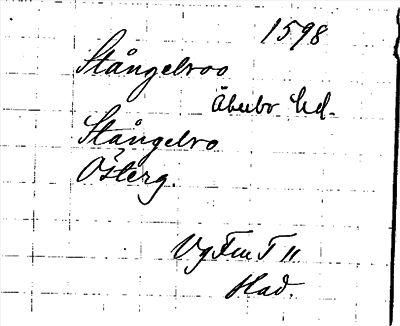 1598
Stångebroo
Åkerbo hd.
Stångebro
Österg.
VgFmT II
Had.